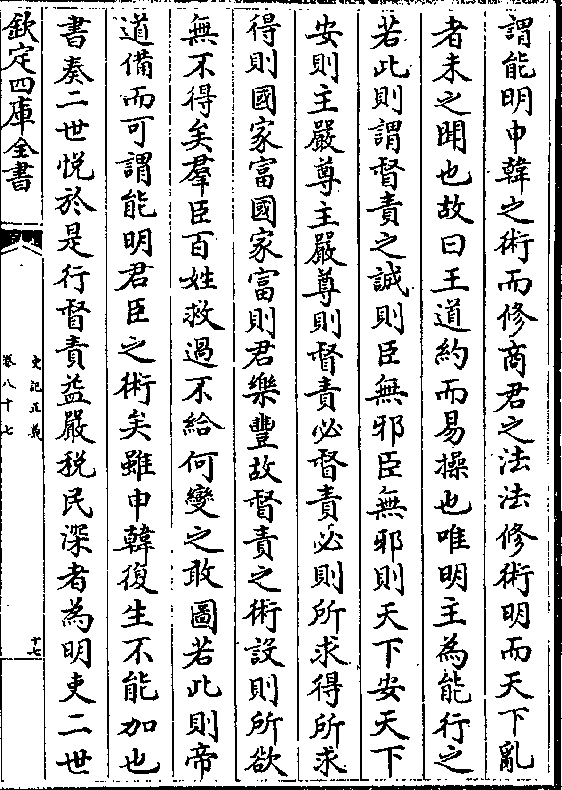 謂能明申韓之術而修商君之法法修術明而天下亂
者未之聞也故曰王道約而易操也唯明主為能行之
若此則謂督責之誠則臣無邪臣無邪則天下安天下
安則主嚴尊主嚴尊則督責必督責必則所求得所求
得則國家富國家富則君樂豐故督責之術設則所欲
無不得矣羣臣百姓救過不給何變之敢圖若此則帝
道備而可謂能明君臣之術矣雖申韓復生不能加也
書奏二世悅於是行督責益嚴稅民深者為明吏二世
欽定四庫全書
史記正義
卷八十七
十七